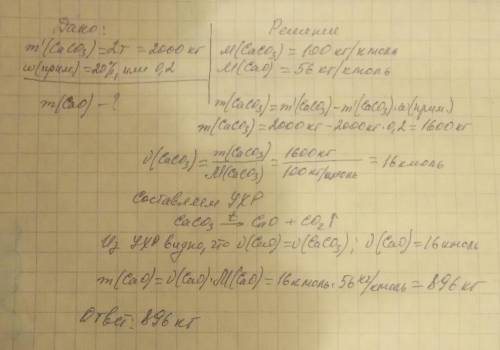 Дано:
m'(CaCO3)=2т = 2000 кг
ω(прим.)=20%, или 0,2
m(CaO) - ?
Решение
M(CaCO3) = 100 кг/кмоль
M(CaO) = 56 кг/кмоль
m(CaCO3) = m'(CaCO3) - m'(CaCO3)·ω(прим.)
m(CaCO3) = 2000 кг - 2000 кг·0,2 = 1600 кг
ν(CaCO3) = m(CaCO3)/M(CaCO3) = 1600 кг/100 кг/кмоль = 16 кмоль
Составляем УХР
CaCO3 t→ CaO + CO2↑
Из УХР видно, что ν(CaO) = ν(CaCO3); ν(CaO) = 16 кмоль
m(CaO) = ν(CaO)·M(CaO) = 16 кмоль·56 кг/кмоль = 896 кг
Ответ: 896 кг